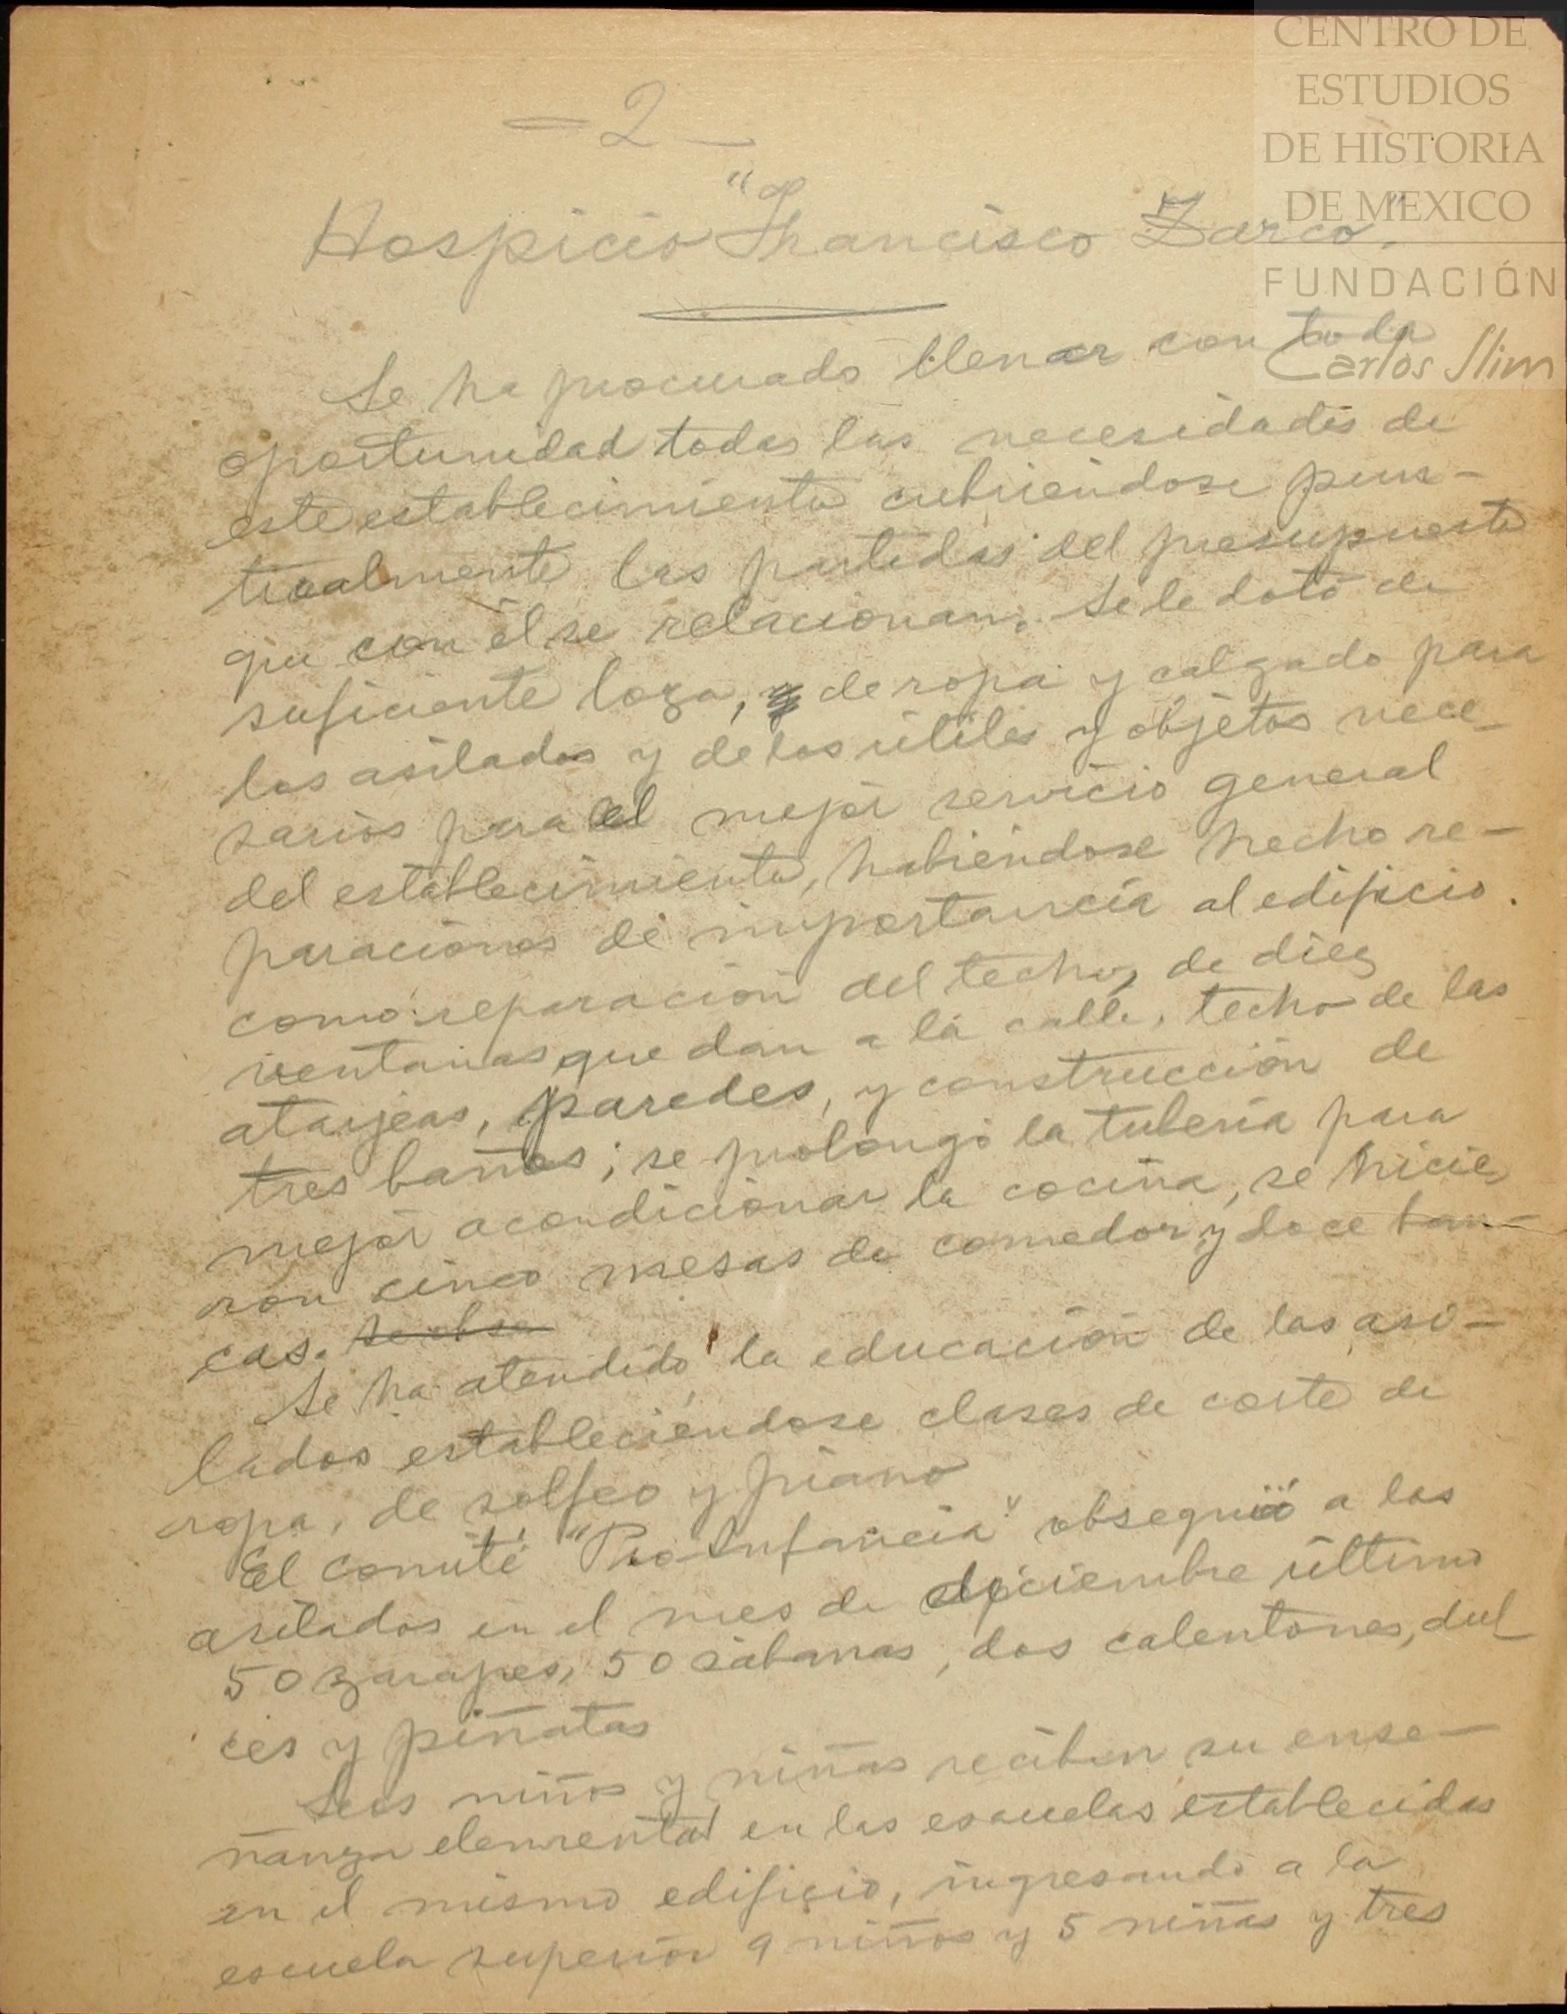 CENTRO DE
ESTUDIOS
DE HISTORIA
DE MEXICO
FUNDACIÓN
Carlos Slim
— 2 —
Hospicio "Francisco Zarco".
Se ha procurado llenar con toda
oportunidad todas las necesidades de
este establecimiento cubriéndose pun-
tualmente las partidas del presupuesto
que con él se relacionan. Se le dotó de
suficiente loza, de ropa y calzado para
los asilados y de los útiles y objetos nece-
sarios para el mejor servicio general
del establecimiento, habiéndose hecho re-
paraciones de importancia al edificio.
como reparación del techo, de diez
ventanas que dan a la calle, techo de las
atarjeas, paredes, y construcción de
tres baños; se prolongó la tubería para
mejor acondicionar la cocina, se hicie-
ron cinco mesas de comedor y doce ban-
cas.
Se ha atendido la educación de los asi-
lados estableciéndose clases de corte de
ropa, de solfeo y piano
El comité "Pro-Infancia" obsequió a los
asilados en el mes de diciembre último
50 zarapes, 50 sábanas, dos calentones, dul-
ces y piñatas
Los niños y niñas reciben su ense-
ñanza elemental en las escuelas establecidas
en el mismo edificio, ingresando a la
escuela superior 9 niños y 5 niñas y tres